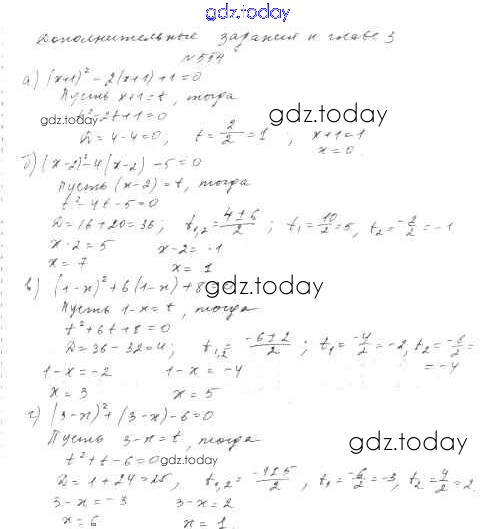 gdz.today
Дополнительные задания к главе 3
№ 554
а) (x+1)² - 2(x+1) + 1 = 0
Пусть x+1 = t, тогда
t² - 2t + 1 = 0
gdz.today
gdz.today
D = 4 - 4 = 0, t = 2/2 = 1 ; x+1 = 1
x = 0
б) (x-2)² - 4(x-2) - 5 = 0
Пусть (x-2) = t, тогда
t² - 4t - 5 = 0
D = 16 + 20 = 36; t₁,₂ = (4±6)/2 ; t₁ = 10/2 = 5, t₂ = -2/2 = -1
x - 2 = 5 x - 2 = -1
x = 7 x = 1
в) (1-x)² + 6(1-x) + 8 = 0
gdz.today
Пусть 1-x = t, тогда
t² + 6t + 8 = 0
D = 36 - 32 = 4; t₁,₂ = (-6±2)/2 ; t₁ = -4/2 = -2, t₂ = -8/2 =
= -4
1 - x = -2 1 - x = -4
x = 3 x = 5
г) (3-x)² + (3-x) - 6 = 0
Пусть 3-x = t, тогда
gdz.today
t² + t - 6 = 0
gdz.today
D = 1 + 24 = 25, t₁,₂ = (-1±5)/2 , t₁ = -6/2 = -3, t₂ = 4/2 = 2
3 - x = -3 3 - x = 2
x = 6 x = 1
gdz.today